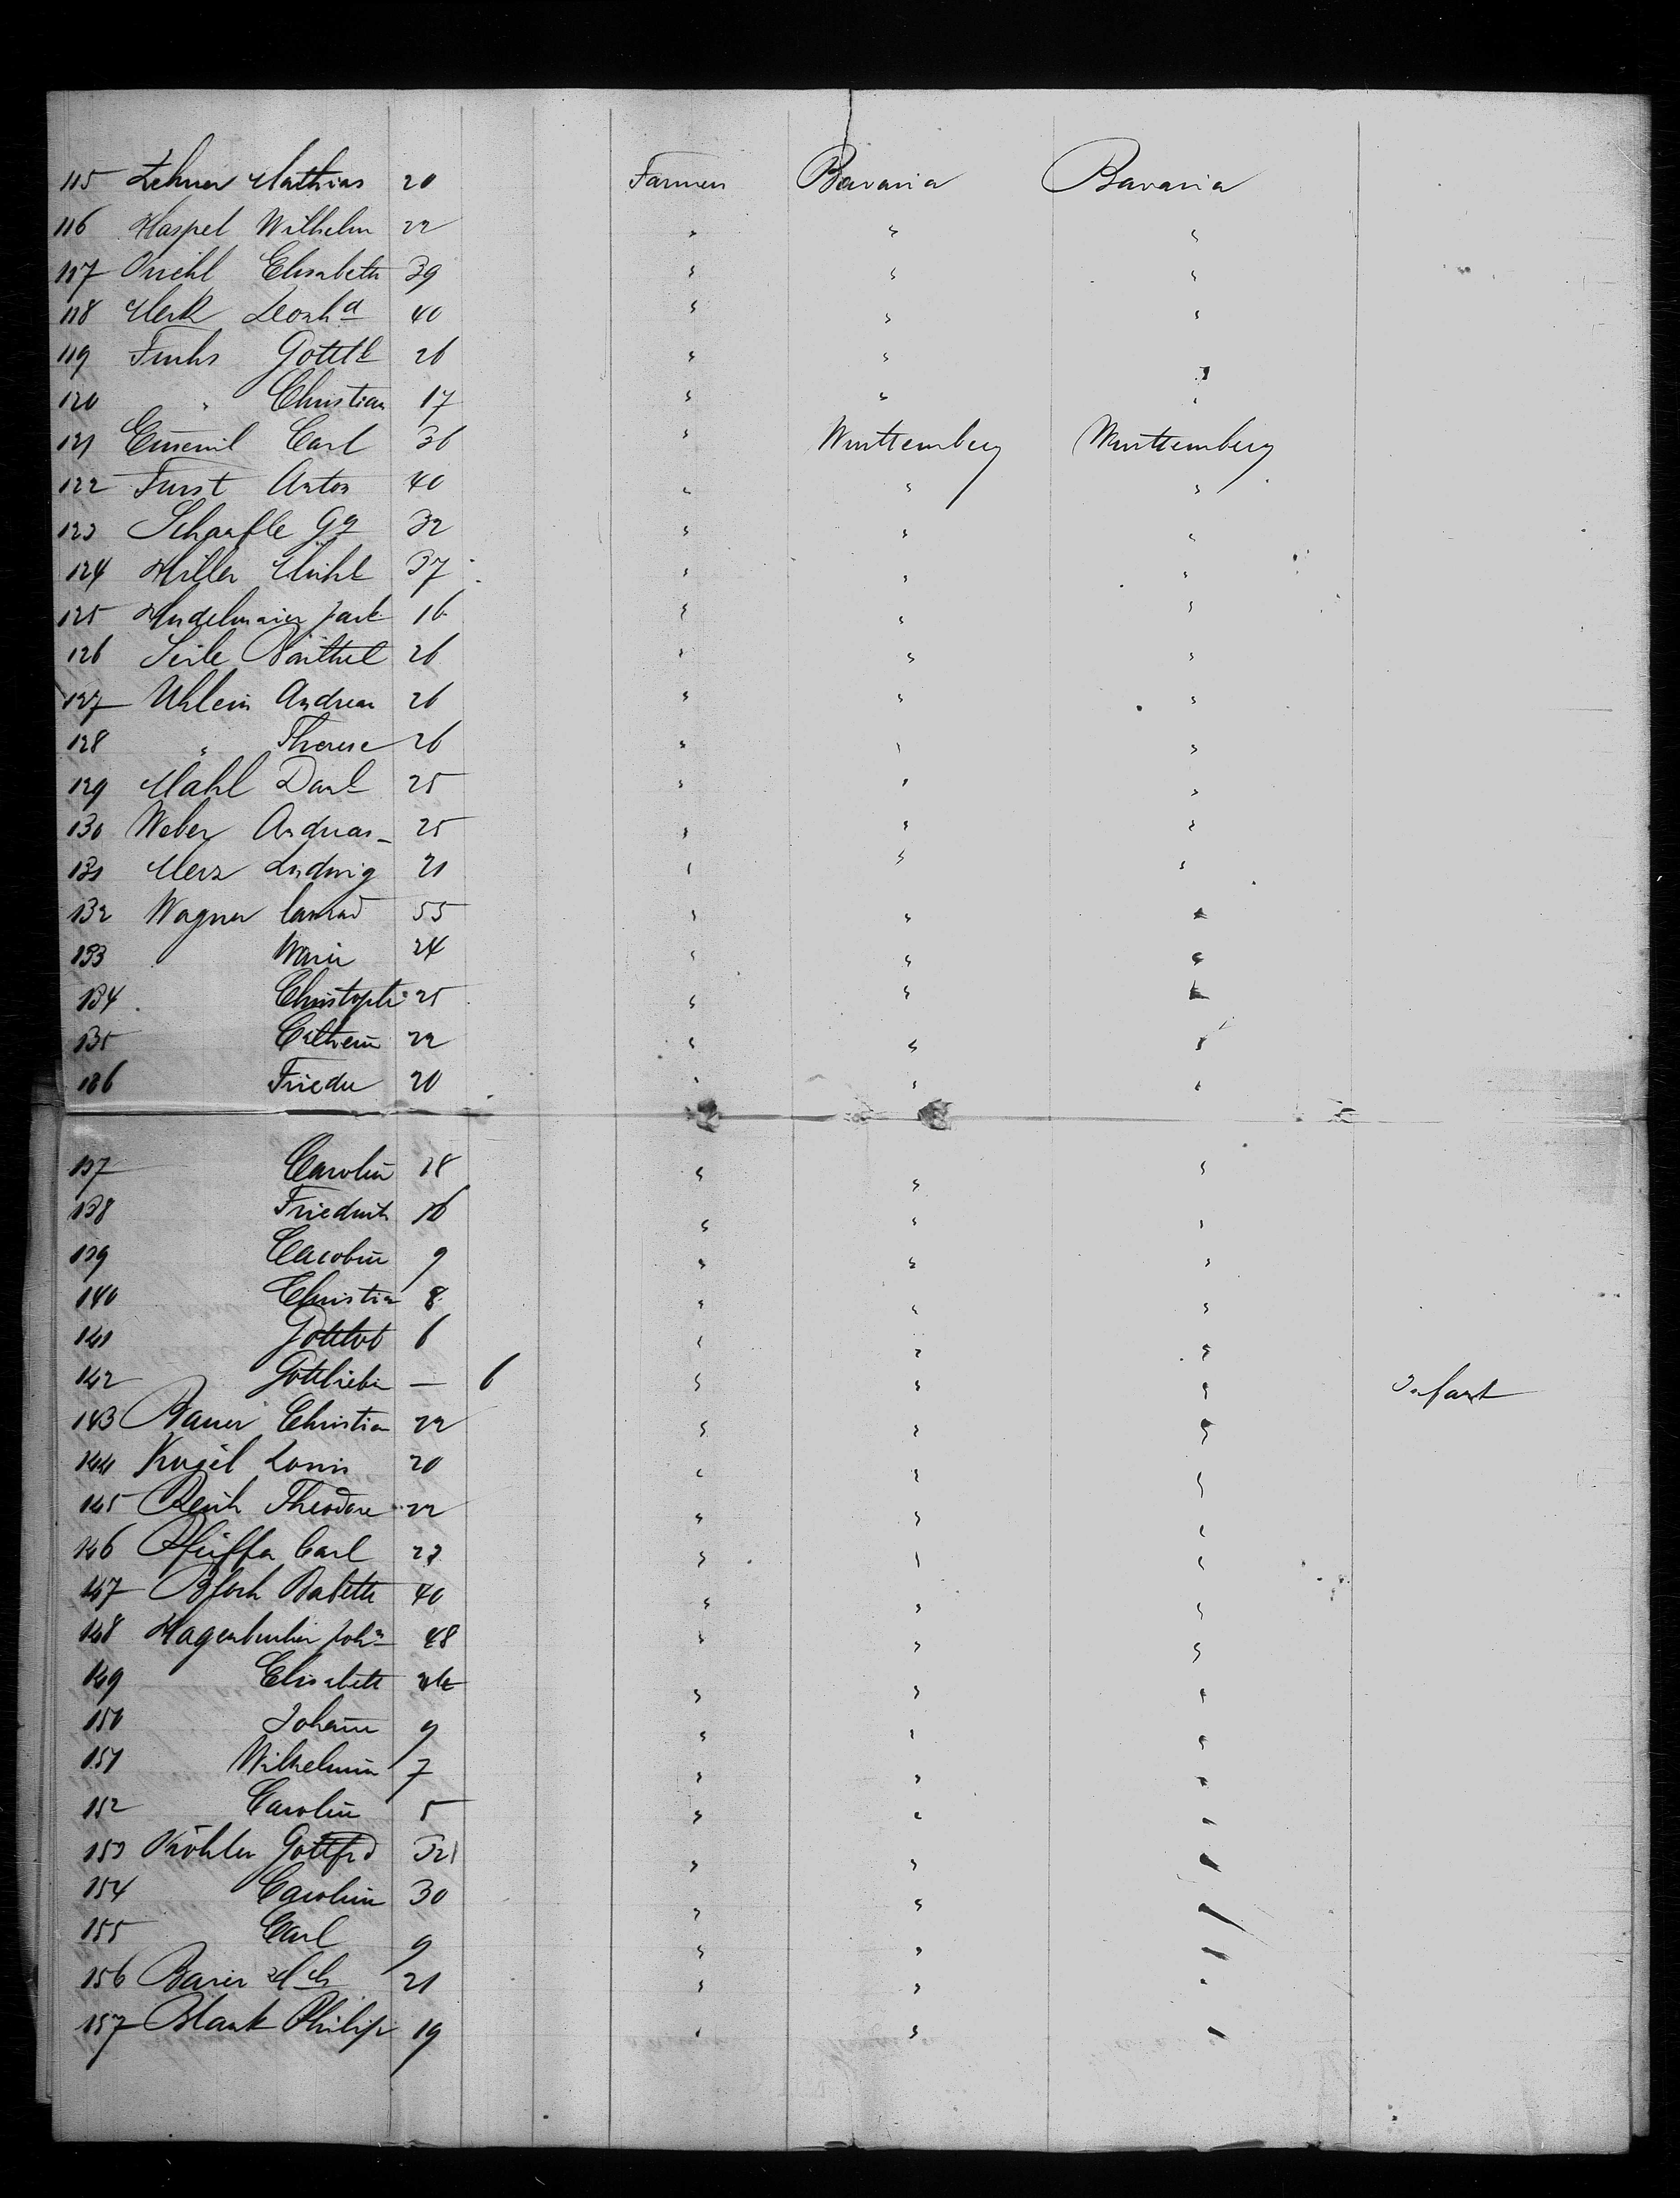 115 Lehner Mathias 20 Farmer Bavaria Bavaria
116 Haspel Wilhelm 22 " " "
117 Elisabeth 39 " " "
118 Merk Leonhd 40 " " "
119 Fuchs Gottlb 26 " " "
120 " Christian 17 " " "
121 Carl 36 " Württemberg Württemberg
122 Furst Anton 40 " " "
123 Scharfle Gg 32 " " "
124 Hiller Michl 37 " " "
125 Hudelmaier Jack 16 " " "
126 26 " " "
127 Uhlein Andreas 26 " " "
128 " Therese 26 " " "
129 Mahl Danl 25 " " "
130 Weber Andreas 25 " " "
131 Merz Ludwig 21 " " "
132 Wagner Conrad 55 " " "
133 Marie 24 " " "
134 Christoph 25 " " "
135 22 " " "
136 Friedr 20 " " "
137 Carolin̄ 18 " " "
138 Friedrich 16 " " "
139 9 " " "
140 Christian 8 " " "
141 Gottlob 6 " " "
142 Gottliebin — 6 " " " Infant
143 Bauer Christian 22 " " "
144 Kugel Louis 20 " " "
145 Theodore 22 " " "
146 Pfeiffer Carl " " "
147 Babette 40 " " "
148 Hagenbucher John 48 " " "
149 Elisabeth " " "
150 Johann 9 " " "
151 Wilhelmin̄ 7 " " "
152 Carolin̄ 5 " " "
153 Köhler Gottfrd 32 " " "
154 Carolin̄ 30 " " "
155 Carl 9 " " "
156 21 " " "
157 Blank Philip 19 " " "